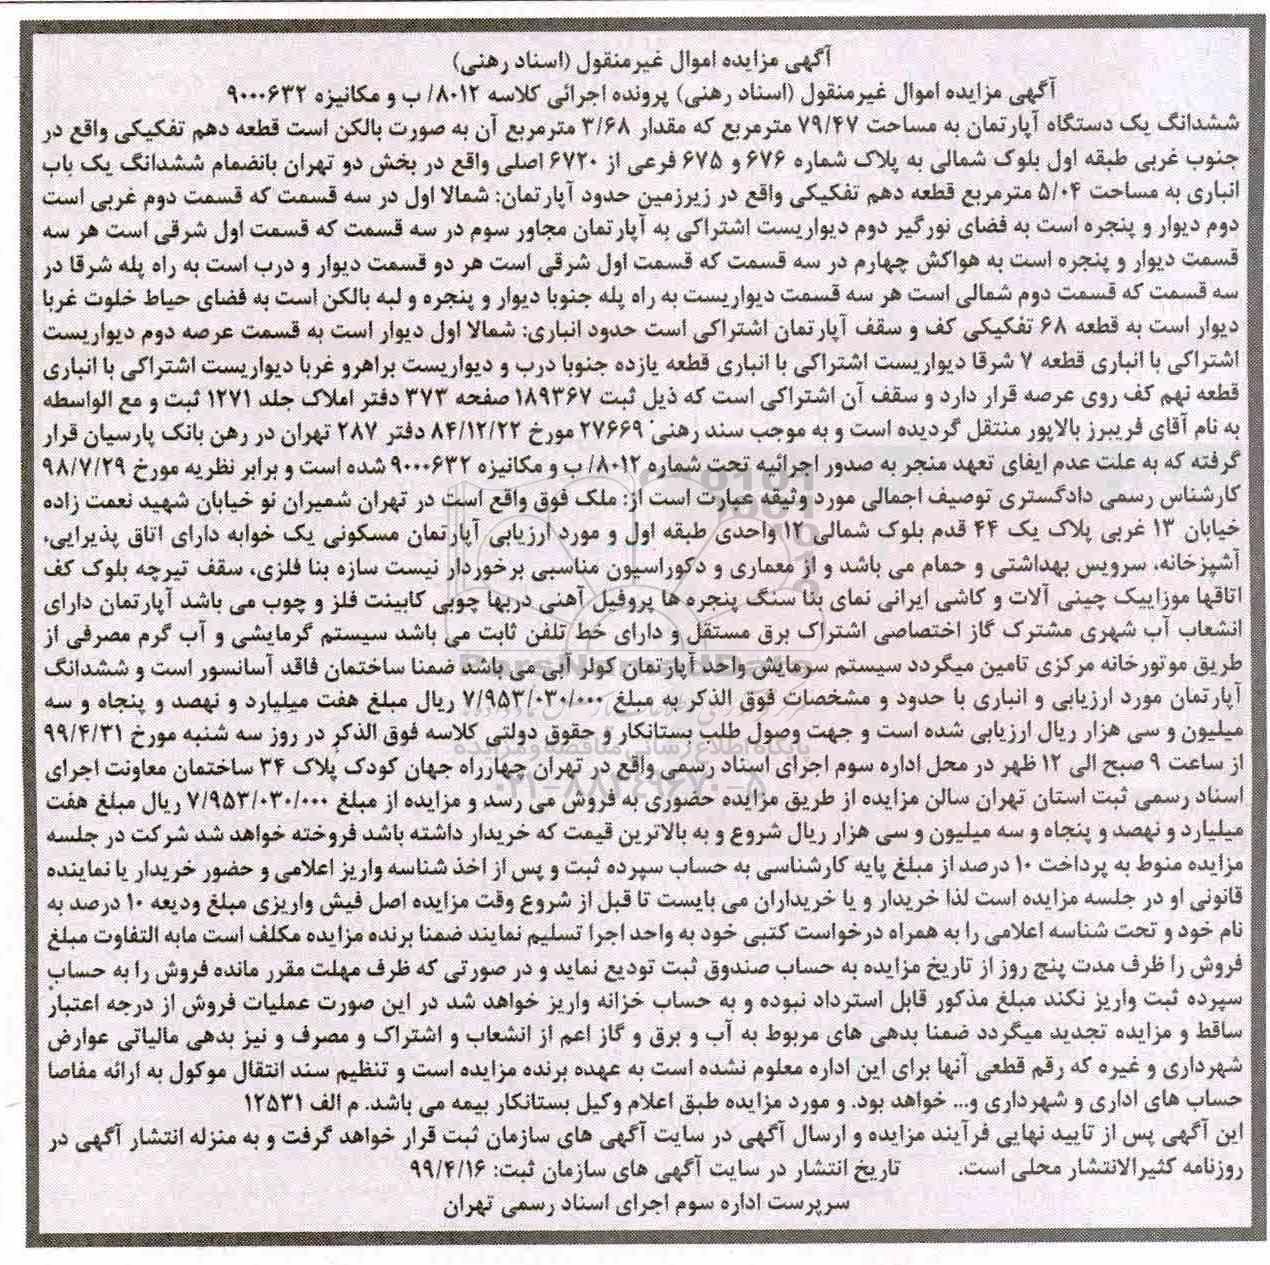 آگهی مزایده اموال غیرمنقول (اسناد رهنی)
آگهی مزایده اموال غیرمنقول (اسناد رهنی) پرونده اجرائی کلاسه ۸۰۱۲/ ب و مکانیزه ۹۰۰۰۶۳۲
ششدانگ یک دستگاه آپارتمان به مساحت ۷۹/۴۷ مترمربع که مقدار ۳/۶۸ مترمربع آن به صورت بالکن است قطعه دهم تفکیکی واقع در
جنوب غربی طبقه اول بلوک شمالی به پلاک شماره ۶۷۶ و ۶۷۵ فرعی از ۶۷۲۰ اصلی واقع در بخش دو تهران بانضمام ششدانگ یک باب
انباری به مساحت ۵/۰۴ مترمربع قطعه دهم تفکیکی واقع در زیرزمین حدود آپارتمان: شمالا اول در سه قسمت که قسمت دوم غربی است
دوم دیوار و پنجره است به فضای نورگیر دوم دیواریست اشتراکی به آپارتمان مجاور سوم در سه قسمت که قسمت اول شرقی است هر سه
قسمت دیوار و پنجره است به هواکش چهارم در سه قسمت که قسمت اول شرقی است هر دو قسمت دیوار و درب است به راه پله شرقا در
سه قسمت که قسمت دوم شمالی است هر سه قسمت دیواریست به راه پله جنوبا دیوار و پنجره و لبه بالکن است به فضای حیاط خلوت غربا
دیوار است به قطعه ۶۸ تفکیکی کف و سقف آپارتمان اشتراکی است حدود انباری: شمالا اول دیوار است به قسمت عرصه دوم دیواریست
اشتراکی با انباری قطعه ۷ شرقا دیواریست اشتراکی با انباری قطعه یازده جنوبا درب و دیواریست براهرو غربا دیواریست اشتراکی با انباری
قطعه نهم کف روی عرصه قرار دارد و سقف آن اشتراکی است که ذیل ثبت ۱۸۹۳۶۷ صفحه ۳۷۳ دفتر املاک جلد ۱۲۷۱ ثبت و مع الواسطه
به نام آقای فریبرز بالاپور منتقل گردیده است و به موجب سند رهنی ۲۷۶۶۹ مورخ ۸۴/۱۲/۲۲ دفتر ۲۸۷ تهران در رهن بانک پارسیان قرار
گرفته که به علت عدم ایفای تعهد منجر به صدور اجرائیه تحت شماره ۸۰۱۲/ ب و مکانیزه ۹۰۰۰۶۳۲ شده است و برابر نظریه مورخ ۹۸/۷/۲۹
کارشناس رسمی دادگستری توصیف اجمالی مورد وثیقه عبارت است از: ملک فوق واقع است در تهران شمیران نو خیابان شهید نعمت زاده
خیابان ۱۳ غربی پلاک یک ۴۴ قدم بلوک شمالی ۱۲ واحدی طبقه اول و مورد ارزیابی آپارتمان مسکونی یک خوابه دارای اتاق پذیرایی،
آشپزخانه، سرویس بهداشتی و حمام می باشد و از معماری و دکوراسیون مناسبی برخوردار نیست سازه بنا فلزی، سقف تیرچه بلوک کف
اتاقها موزاییک چینی آلات و کاشی ایرانی نمای بنا سنگ پنجره ها پروفیل آهنی دربها چوبی کابینت فلز و چوب می باشد آپارتمان دارای
انشعاب آب شهری مشترک گاز اختصاصی اشتراک برق مستقل و دارای خط تلفن ثابت می باشد سیستم گرمایشی و آب گرم مصرفی از
طریق موتورخانه مرکزی تامین میگردد سیستم سرمایش واحد آپارتمان کولر آبی می باشد ضمنا ساختمان فاقد آسانسور است و ششدانگ
آپارتمان مورد ارزیابی و انباری با حدود و مشخصات فوق الذکر به مبلغ ۷/۹۵۳/۰۳۰/۰۰۰ ریال مبلغ هفت میلیارد و نهصد و پنجاه و سه
میلیون و سی هزار ریال ارزیابی شده است و جهت وصول طلب بستانکار و حقوق دولتی کلاسه فوق الذکر در روز سه شنبه مورخ ۹۹/۴/۳۱
از ساعت ۹ صبح الی ۱۲ ظهر در محل اداره سوم اجرای اسناد رسمی واقع در تهران چهارراه جهان کودک پلاک ۳۴ ساختمان معاونت اجرای
اسناد رسمی ثبت استان تهران سالن مزایده از طریق مزایده حضوری به فروش می رسد و مزایده از مبلغ ۷/۹۵۳/۰۳۰/۰۰۰ ریال مبلغ هفت
میلیارد و نهصد و پنجاه و سه میلیون و سی هزار ریال شروع و به بالاترین قیمت که خریدار داشته باشد فروخته خواهد شد شرکت در جلسه
مزایده منوط به پرداخت ۱۰ درصد از مبلغ پایه کارشناسی به حساب سپرده ثبت و پس از اخذ شناسه واریز اعلامی و حضور خریدار یا نماینده
قانونی او در جلسه مزایده است لذا خریدار و یا خریداران می بایست تا قبل از شروع وقت مزایده اصل فیش واریزی مبلغ ودیعه ۱۰ درصد به
نام خود و تحت شناسه اعلامی را به همراه درخواست کتبی خود به واحد اجرا تسلیم نمایند ضمنا برنده مزایده مکلف است مابه التفاوت مبلغ
فروش را ظرف مدت پنج روز از تاریخ مزایده به حساب صندوق ثبت تودیع نماید و در صورتی که ظرف مهلت مقرر مانده فروش را به حساب
سپرده ثبت واریز نکند مبلغ مذکور قابل استرداد نبوده و به حساب خزانه واریز خواهد شد در این صورت عملیات فروش از درجه اعتبار
ساقط و مزایده تجدید میگردد ضمنا بدهی های مربوط به آب و برق و گاز اعم از انشعاب و اشتراک و مصرف و نیز بدهی مالیاتی عوارض
شهرداری و غیره که رقم قطعی آنها برای این اداره معلوم نشده است به عهده برنده مزایده است و تنظیم سند انتقال موکول به ارائه مفاصا
حساب های اداری و شهرداری و... خواهد بود. و مورد مزایده طبق اعلام وکیل بستانکار بیمه می باشد. م الف ۱۲۵۳۱
این آگهی پس از تایید نهایی فرآیند مزایده و ارسال آگهی در سایت آگهی های سازمان ثبت قرار خواهد گرفت و به منزله انتشار آگهی در
روزنامه کثیرالانتشار محلی است. تاریخ انتشار در سایت آگهی های سازمان ثبت: ۹۹/۴/۱۶
سرپرست اداره سوم اجرای اسناد رسمی تهران